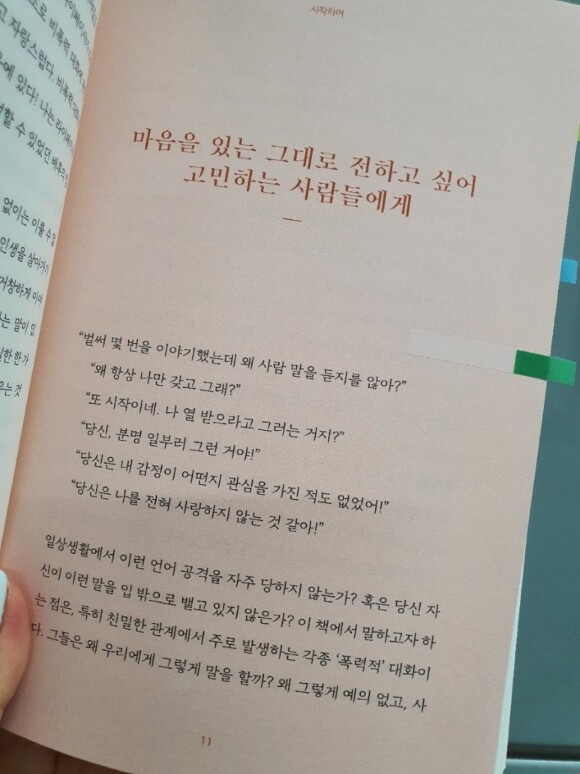 고 자랑스럽다. 비폭력
에 있다! 나는
할 수 있었던
없이는 이룰 수
인생을 살아가
거창하게 이야
는 말이 있
한 가
우는 것
시작하며
마음을 있는 그대로 전하고 싶어
고민하는 사람들에게
“벌써 몇 번을 이야기했는데 왜 사람 말을 듣지를 않아?”
“왜 항상 나만 갖고 그래?”
“또 시작이네. 나 열 받으라고 그러는 거지?”
“당신, 분명 일부러 그런 거야!”
“당신은 내 감정이 어떤지 관심을 가진 적도 없었어!”
“당신은 나를 전혀 사랑하지 않는 것 같아!”
일상생활에서 이런 언어 공격을 자주 당하지 않는가? 혹은 당신 자
신이 이런 말을 입 밖으로 뱉고 있지 않은가? 이 책에서 말하고자 하
는 점은, 특히 친밀한 관계에서 주로 발생하는 각종 ‘폭력적’ 대화이
다. 그들은 왜 우리에게 그렇게 말을 할까? 왜 그렇게 예의 없고, 사
11